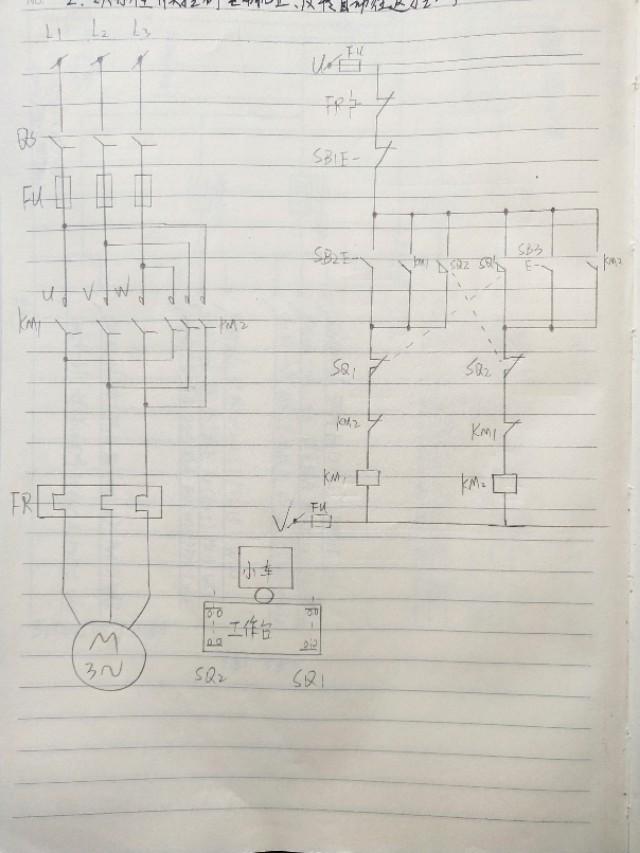 L1 L2 L3
U FU
FR
QS
SB1 E-
FU
SB2 E- KM1 SQ2 SQ1 SB3 E- KM2
U V W
KM1 KM2
SQ1 SQ2
KM2 KM1
KM1 KM2
FR
V FU
小车
工作台
M
3~
SQ2 SQ1